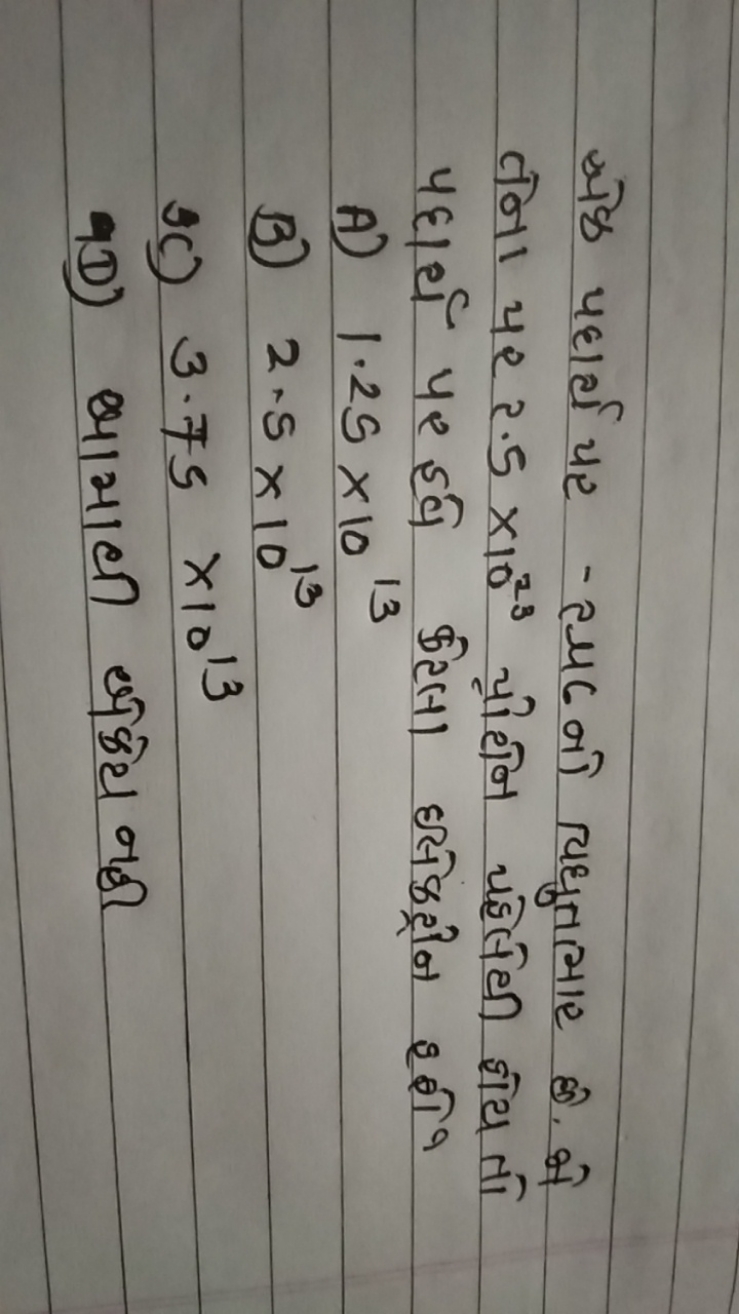 એક પદાર્થ પર -2μC નો વિધુતભાર છે. જો
તેના પર 2.5 ×10²³ પ્રોટોન પહેલેથી હોય તો
પદાર્થ પર હવે કેટલા ઇલેકટ્રોન હશે?
A) 1.25 ×10¹³
B) 2.5 ×10¹³
C) 3.75 ×10¹³
D) આમાથી એકેય નહી